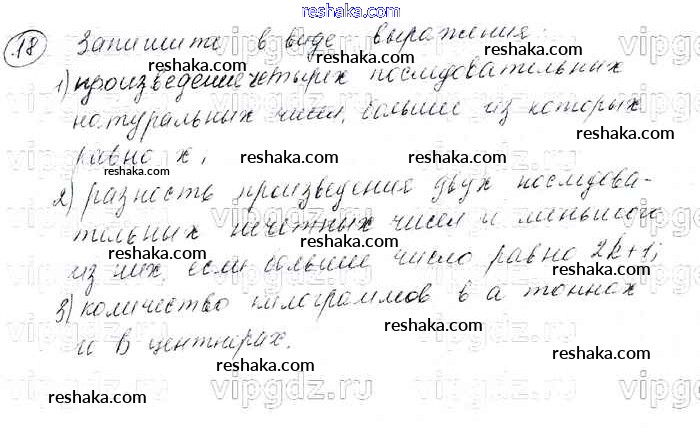 reshaka.com
18 Запишите в виде выражения:
1) произведение четырех последовательных
натуральных чисел, большее из которых
равно x;
2) разность произведения двух последова-
тельных нечётных чисел и меньшего
из них, если большее число равно 2k+1;
3) количество килограммов в a тоннах
и в центнерах.
reshaka.com
reshaka.com
reshaka.com
reshaka.com
reshaka.com
reshaka.com
reshaka.com
reshaka.com
reshaka.com
reshaka.com
reshaka.com
reshaka.com
reshaka.com
vipgdz.ru
vipgdz.ru
vipgdz.ru